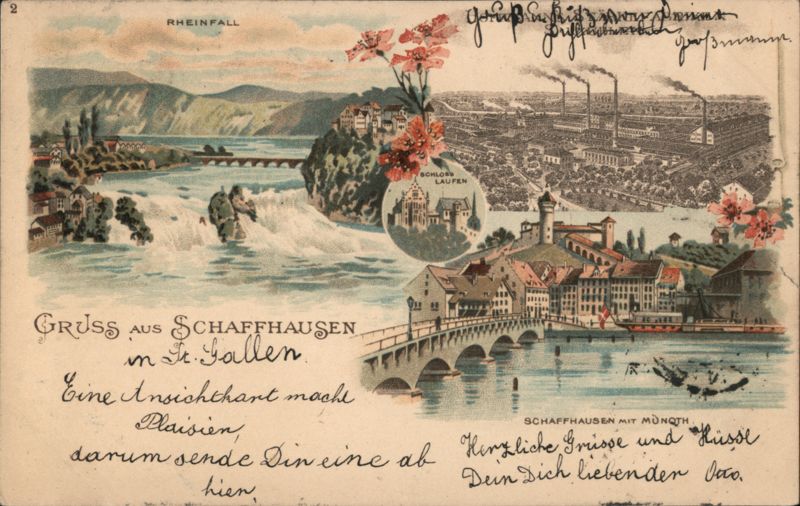 2
RHEINFALL
Gruß u. Kuß
Großmann.
SCHLOSS
LAUFEN
GRUSS AUS SCHAFFHAUSEN
in St. Gallen.
Eine Ansichtkart macht
Plaisier,
darum sende Dir eine ab
hier.
SCHAFFHAUSEN MIT MUNOTH
Herzliche Grüsse und Küsse
Dein Dich liebender Otto.